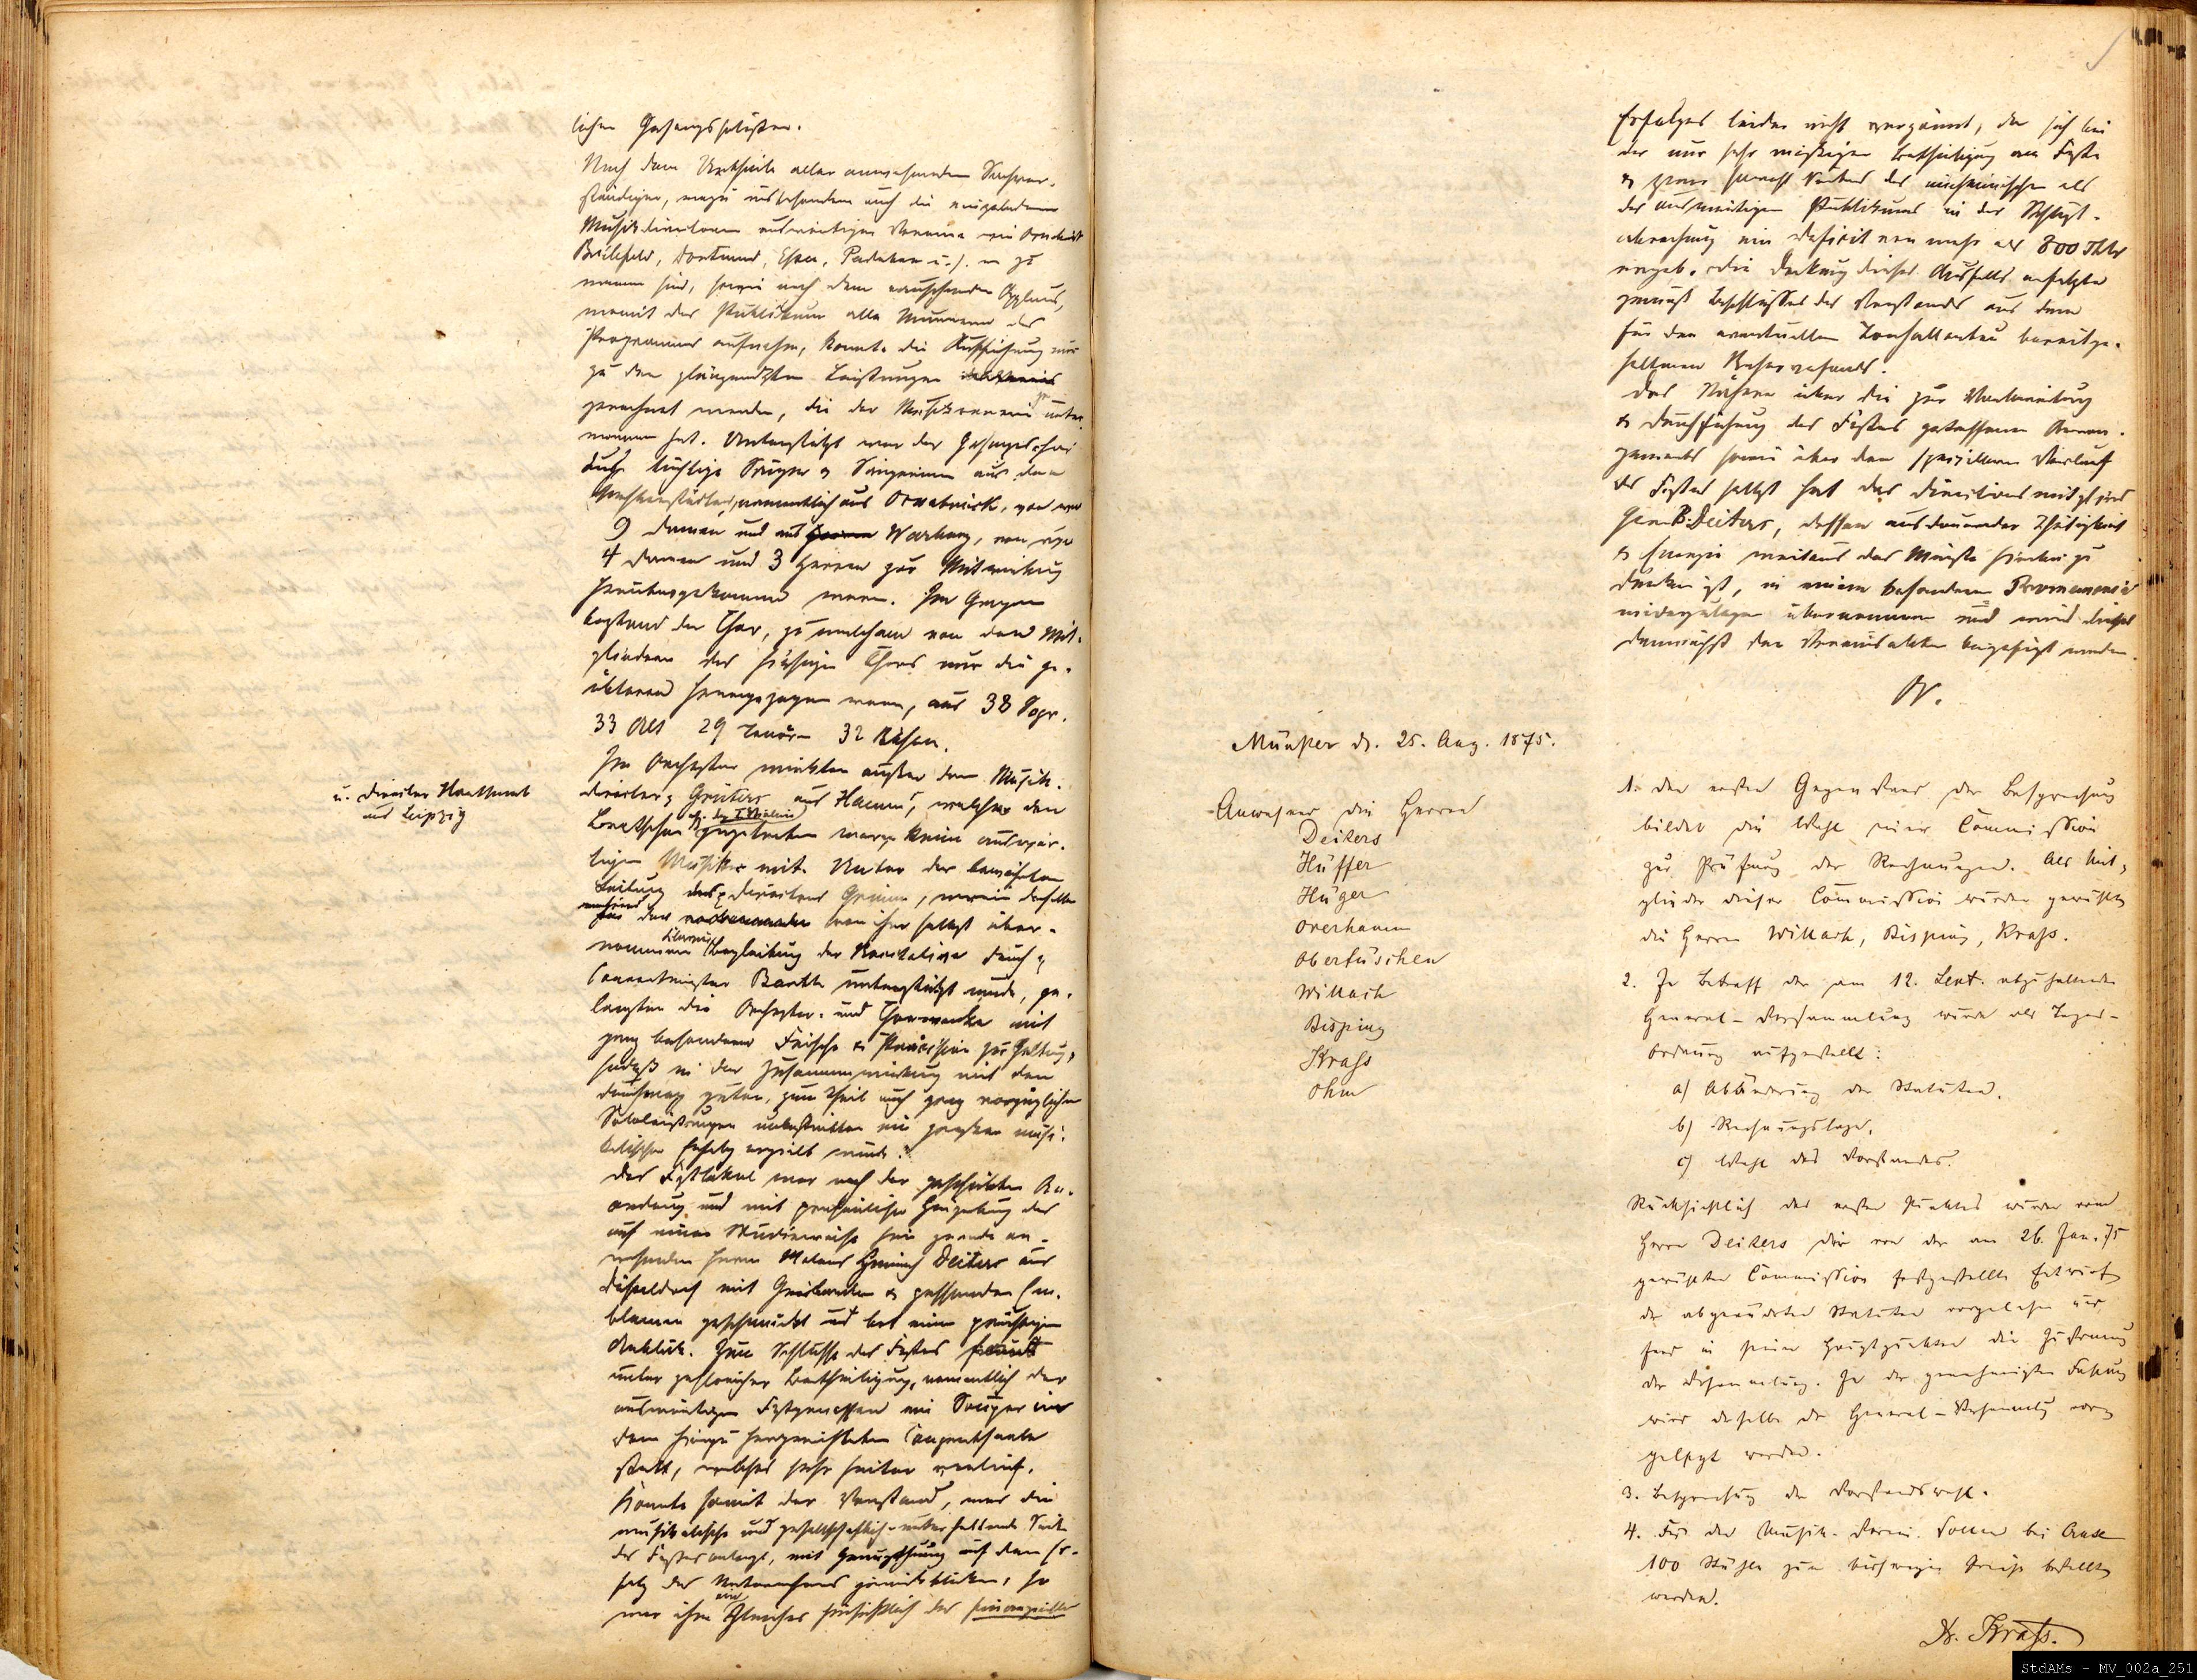 lichen Gesangssolisten.
Nach dem Urtheile aller anwesenden Sachver-
ständigen, wozu insbesondere auch die eingeladenen
Musikdirectoren auswärtiger Vereine wie
Bielefeld, Dortmund, Essen, Paderborn u.s.w. zu
nennen sind, sowie nach dem rauschenden Applaus,
womit das Publikum alle Nummern des
Programms aufnahm, konnte die Aufführung nur
zu den glänzendsten Leistungen
gerechnet werden, die der Musikverein je unter-
nommen hat. Unterstützt war der Gesangschor
durch tüchtige Sänger & Sängerinnen aus den
Nachbarstädten, namentlich aus Osnabrück, von wo
9 Damen und aus Warburg, von wo
4 Damen und 3 Herren zur Mitwirkung
herübergekommen waren. Im Ganzen
bestand der Chor, zu welchem von den Mit-
gliedern des hiesigen Chors nur die ge-
übteren herangezogen waren, aus 38 Sopr.
33 Alt 29 Tenören 32 Bässen.
Im Orchester wirkten außer dem Musik-
director Grüters aus Hamm, welcher den
u. Director
aus Leipzig
Bratschen zugetreten waren keine auswär-
tigen Musiker mit. Unter der bewährten
Leitung des Directors Grimm, worin derselbe
während der von ihm selbst über-
nommenen Begleitung der Recitative durch
Concertmeister Barth unterstützt wurde, ge-
langten die Orchester- und Chorwerke mit
ganz besonderer Frische & Präcision zur Geltung,
sodaß in der Zusammenwirkung mit den
durchweg guten, zum Theil auch ganz vorzüglichen
Sololeistungen unbestritten ein großer musi-
kalischer Erfolg erzielt wurde.
Das Festlokal war nach der geschickten An-
ordnung und mit Hingebung des
auf einer Studienreise hier gerade an-
wesenden Herrn Malers Heinrich Deiters aus
Düsseldorf mit Guirlanden & passenden Em-
blemen geschmückt und bot einen prächtigen
Anblick. Zum Schlusse des Festes fand
unter zahlreicher Betheiligung, namentlich der
auswärtigen Festgenossen ein Souper in
dem hierzu hergerichteten Concertsaale
statt, welches sehr heiter verlief.
Konnte somit der Vorstand, was die
musikalische und gesellschaftlich-unterhaltende Seite
des Festes anlangt, mit Genugthuung auf den Er-
folg des Unternehmens zurückblicken, so
war ihm ein Gleiches hinsichtlich des finanziellen
Erfolges leider nicht vergönnt, da sich bei
der nur sehr mäßigen Betheiligung am Feste
& zwar sowohl Seitens des einheimischen als
des auswärtigen Publikums in der Schluß-
abrechnung ein Deficit von mehr als 800 Thlr
ergab. Die Deckung dieses Ausfalls erfolgte
gemäß Beschlusses des Vorstandes aus dem
für den eventuellen Tonhallenbau bereitge-
haltenen Reservefonds.
Das Nähere über die zur Vorbereitung
& Durchführung des Festes getroffenen Arran-
gements sowie über den speziellen Verlauf
des Festes selbst hat das Directionsmitglied
Herr B. Deiters, dessen ausdauernder Thätigkeit
& Energie weitaus das Meiste hierbei zu
danken ist, in einem besonderen Promemoria
niederzulegen übernommen und wird dieses
demnächst den Vereinsakten beigefügt werden.
Münster d. 25. Aug. 1875.
Anwesend die Herren
Deiters
Hüffer
Hüger
Overhamm
Obertüschen
Willach
Bisping
Kraß
Ohm
1. Den ersten Gegenstand der Besprechung
bildet die Wahl einer Commission
zur Prüfung der Rechnungen. Als Mit-
glieder dieser Commission wurden gewählt
die Herren Willach, Bisping, Kraß.
2. In Betreff der am 12. Sept. abzuhaltenden
General-Versammlung wurde als Tages-
ordnung aufgestellt:
a) Abänderung der Statuten.
b) Rechnungslage.
c) Wahl des Vorstandes.
Rücksichtlich des ersten Punktes wurde vom
Herrn Deiters der von der am 26. Jan. 75
gewählten Commission festgestellte Entwurf
der abgeänderten Statuten vorgelesen und
fand in seinen Hauptpunkten die Zustimmung
der Versammlung. In der genehmigten Fassung
wird derselbe der General-Versammlung vor-
gelegt werden.
3. Besprechung der Vorstandswahl.
4. Für den Musik-Verein sollen bei
100 Stühle zum bisherigen Preise bestellt
werden.
Dr. Kraß.
StdAMs - MV_002a_251